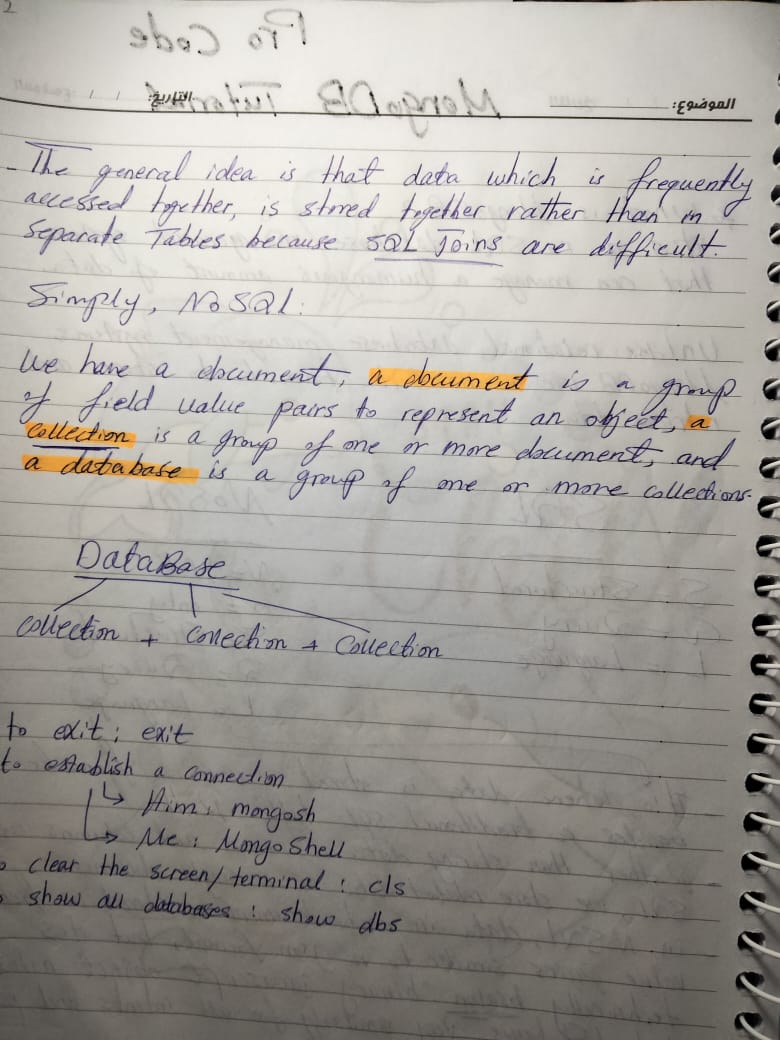 2
Pro Code
MongoDB Tutorial
الموضوع: التاريخ: / /
- The general idea is that data which is frequently
accessed together, is stored together rather than in
separate Tables because SQL Joins are difficult.
Simply, NoSQL:
We have a document, a document is a group
of field value pairs to represent an object, a
collection is a group of one or more document, and
a database is a group of one or more collections.
DataBase
collection + Collection + Collection
to exit : exit
to establish a connection
↳ Him : mongosh
↳ Me : Mongo Shell
clear the screen/terminal : cls
show all databases : show dbs